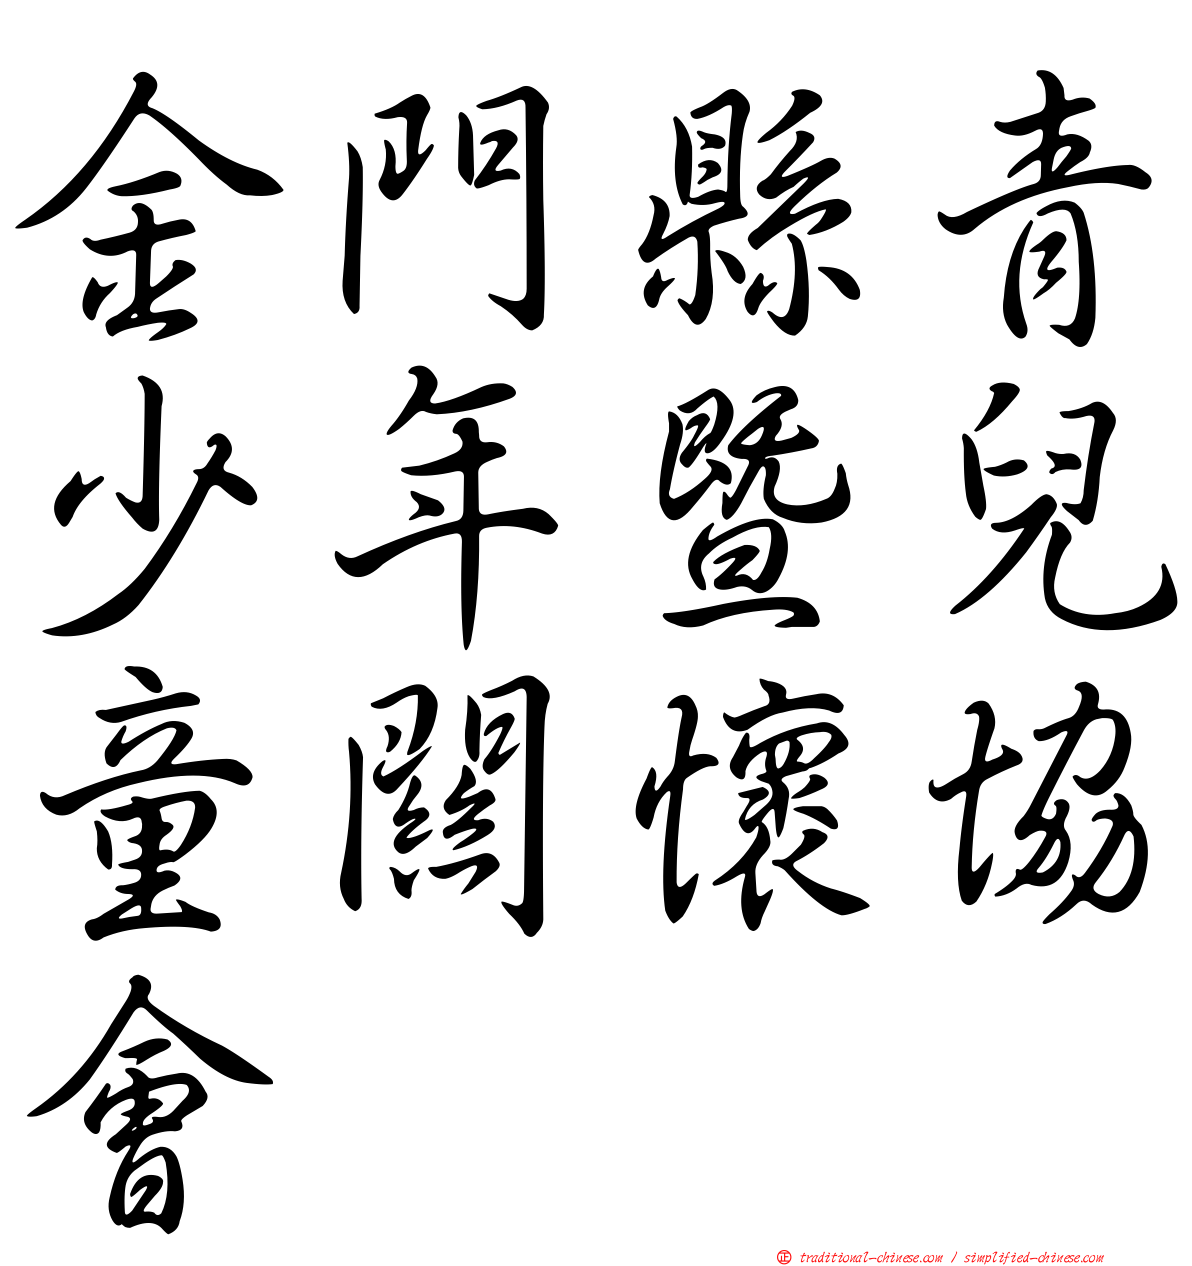 金門縣青
少年暨兒
童關懷協
會
㊣ traditional-chinese.com / simplified-chinese.com